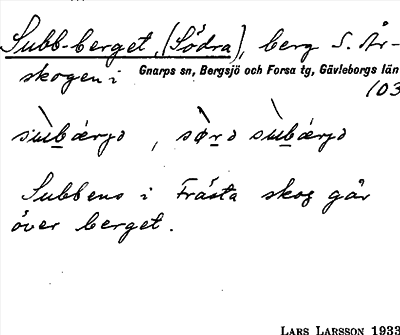 Subb-berget, (Södra), berg S. År-
skogen i Gnarps sn, Bergsjö och Forsa tg, Gävleborgs län
103
Subbens i Frästa skog går
över berget.
LARS LARSSON 1933